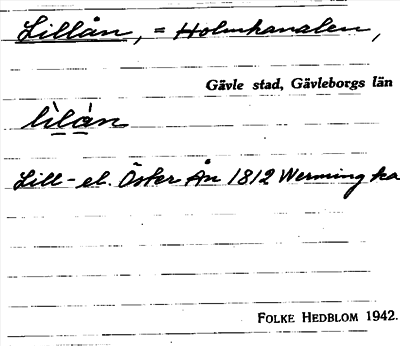 Lillån, = Holmkanalen,
Gävle stad, Gävleborgs län
lìlá̀n
Lill- el. Öster Ån 1812 Werming ka
FOLKE HEDBLOM 1942.